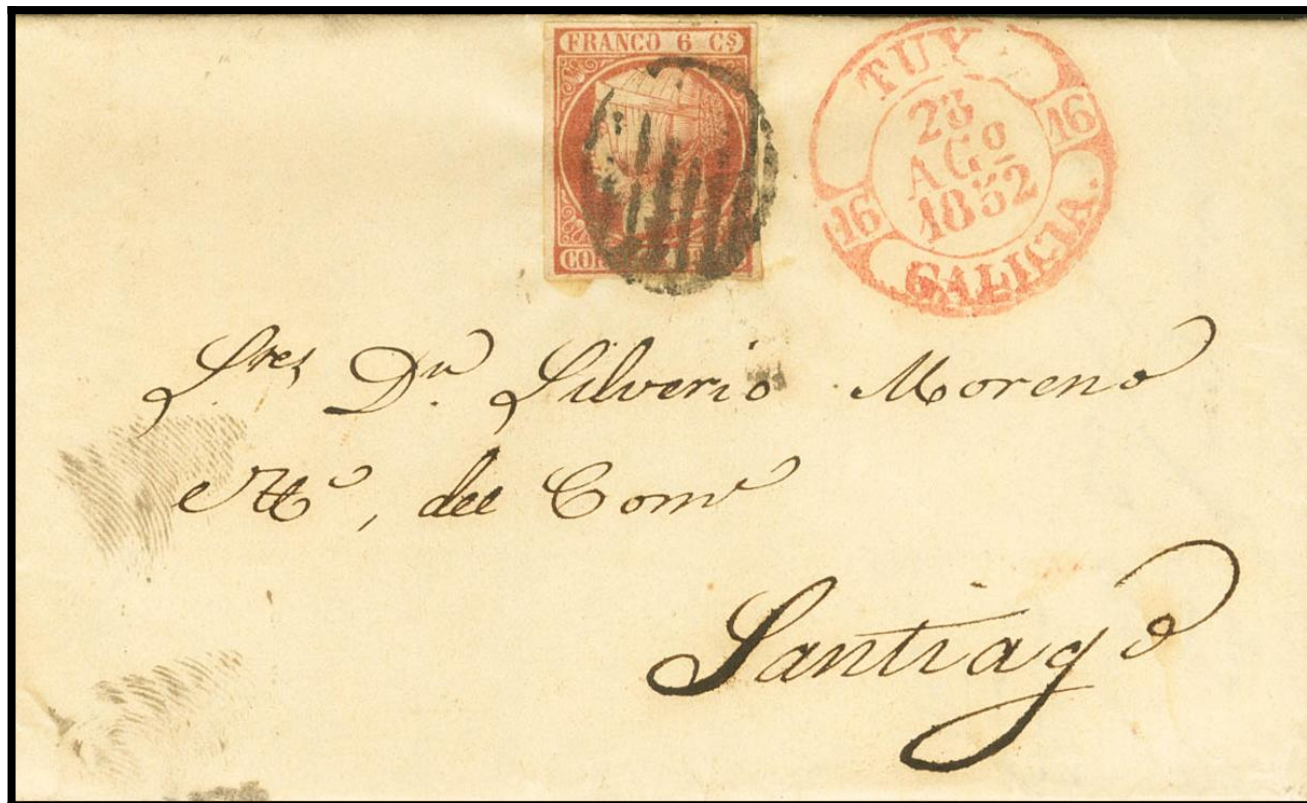 FRANCO 6 Cs
TUY
16
23
AGo
1852
16
GALICIA.
Sres Dn. Silverio Moreno
del Como
Santiago